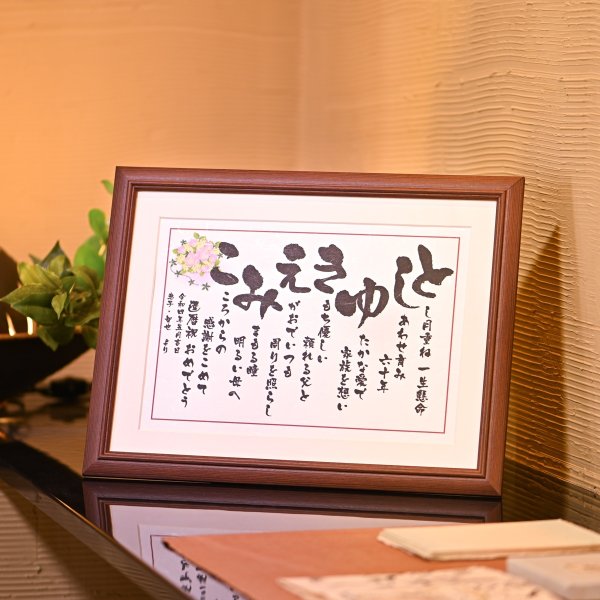 としゆきえみこ
し月重ね 一生懸命
あわせ育み
六十年
たかな愛で
家族を想い
もち優しい
頼れる父と
がおでいつも
周りを照らし
まもる瞳
明るい母へ
ころからの
感謝をこめて
還暦祝 おめでとう
令和四年五月吉日
息子・ より